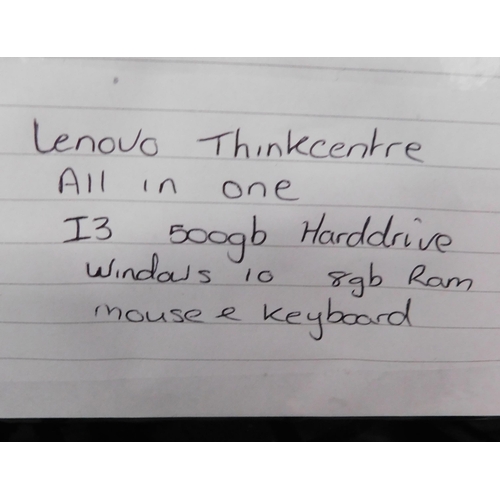 Lenovo Thinkcentre
All in one
I3 500gb Harddrive
Windows 10 8gb Ram
mouse & Keyboard